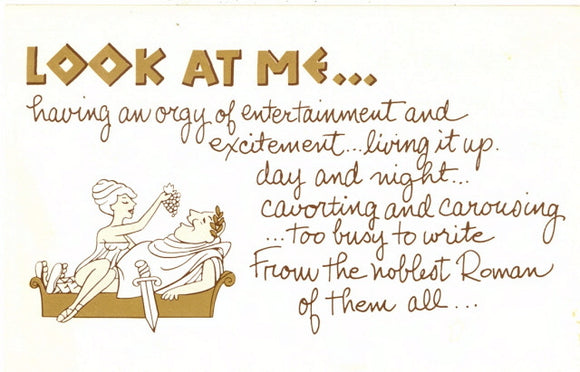 LOOK AT ME...
having an orgy of entertainment and
excitement...living it up.
day and night...
cavorting and carousing
...too busy to write
From the noblest Roman
of them all...